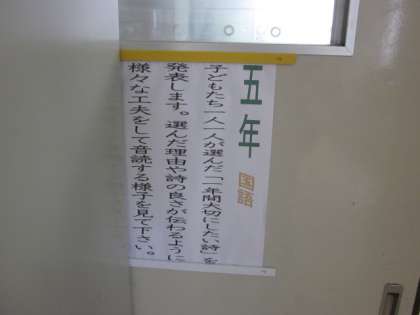 五年 国語
子どもたち一人一人が選んだ「一年間大切にしたい詩」を
発表します。選んだ理由や詩の良さが伝わるように
様々な工夫をして音読する様子を見て下さい。